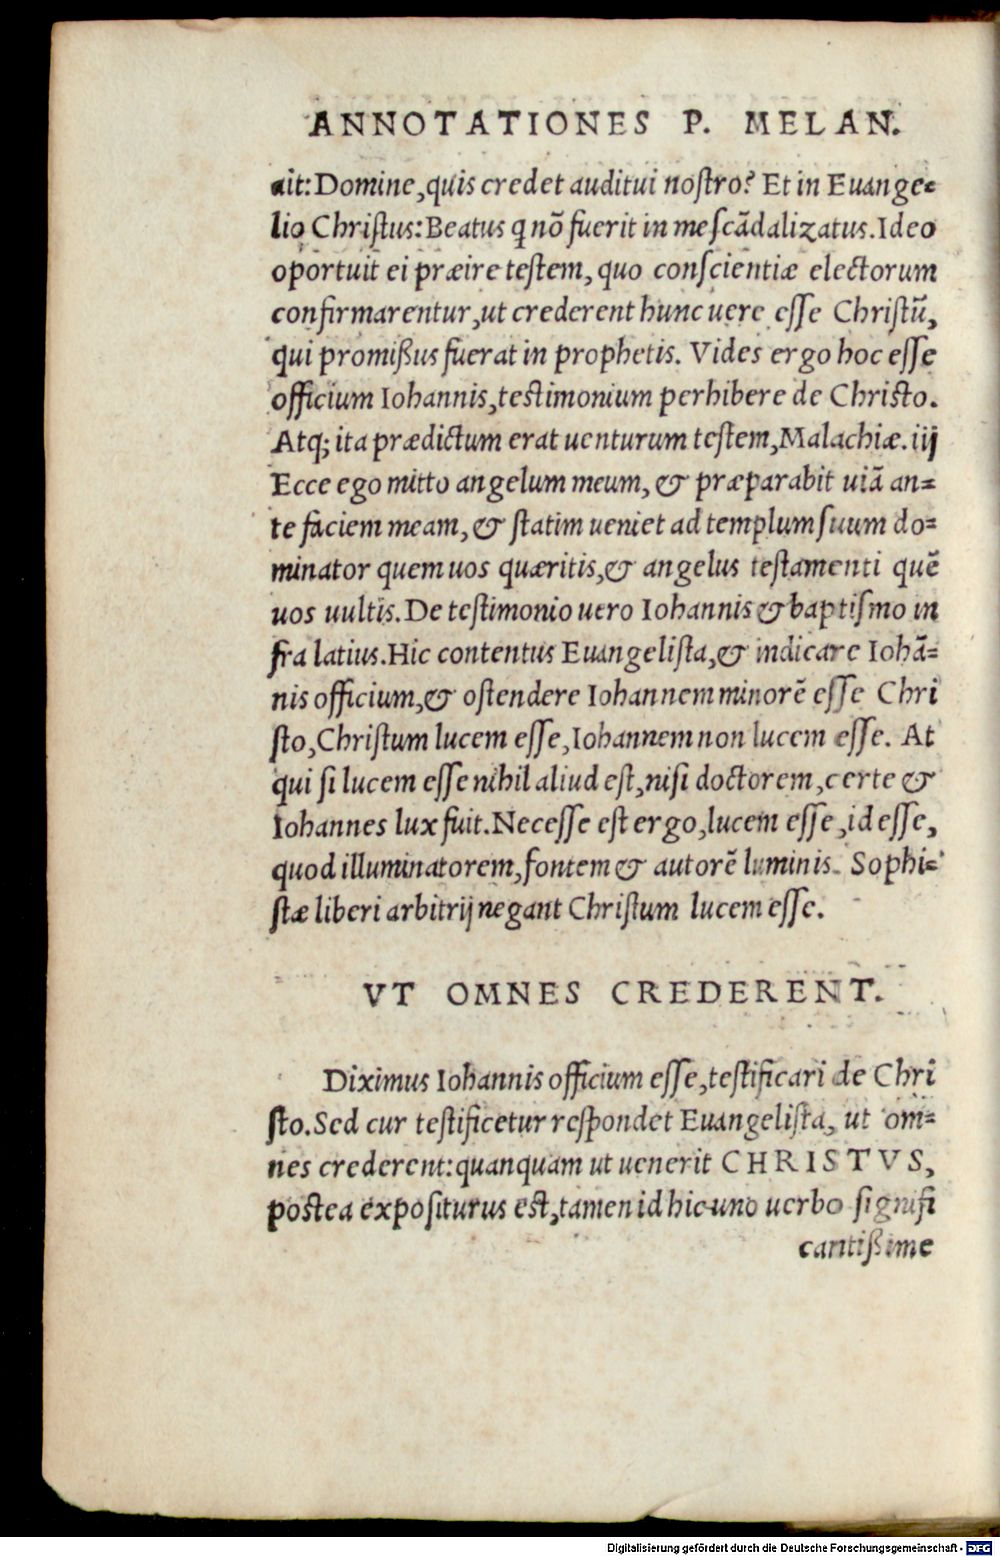 ANNOTATIONES P. MELAN.
ait: Domine, quis credet auditui nostro? Et in Euange=
lio Christus: Beatus q nõ fuerit in me scãdalizatus. Ideo
oportuit ei præire testem, quo conscientiæ electorum
confirmarentur, ut crederent hunc uere esse Christũ,
qui promißus fuerat in prophetis. Vides ergo hoc esse
officium Iohannis, testimonium perhibere de Christo.
Atq; ita prædictum erat uenturum testem, Malachiæ. iij
Ecce ego mitto angelum meum, & præparabit uiã an=
te faciem meam, & statim ueniet ad templum suum do=
minator quem uos quæritis, & angelus testamenti quẽ
uos uultis. De testimonio uero Iohannis & baptismo in
fra latius. Hic contentus Euangelista, & indicare Iohã=
nis officium, & ostendere Iohannem minorẽ esse Chri
sto, Christum lucem esse, Iohannem non lucem esse. At
qui si lucem esse nihil aliud est, nisi doctorem, certe &
Iohannes lux fuit. Necesse est ergo, lucem esse, id esse,
quod illuminatorem, fontem & autorẽ luminis. Sophi=
stæ liberi arbitrij negant Christum lucem esse.
VT OMNES CREDERENT.
Diximus Iohannis officium esse, testificari de Chri
sto. Sed cur testificetur respondet Euangelista, ut om=
nes crederent: quanquam ut uenerit CHRISTVS,
postea expositurus est, tamen id hic uno uerbo signifi
cantißime
Digitalisierung gefördert durch die Deutsche Forschungsgemeinschaft - DFG